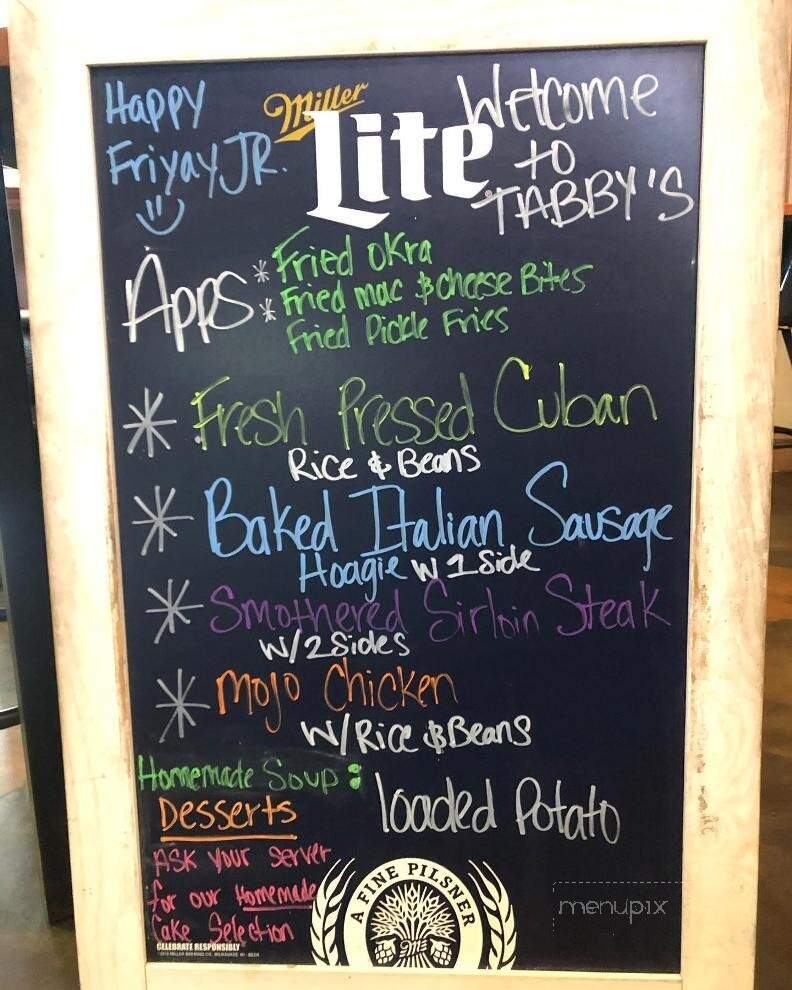 Happy
Friyay JR.
Miller
Lite
Welcome
to
TABBY'S
Apps
* Fried Okra
* Fried mac & cheese Bites
Fried Pickle Fries
* Fresh Pressed Cuban
Rice & Beans
* Baked Italian Sausage
Hoagie w 1 Side
* Smothered Sirloin Steak
w/ 2 Sides
* Mojo Chicken
w/ Rice & Beans
Homemade Soup:
loaded Potato
Desserts
ASK your server
for our Homemade
Cake Selection
A FINE PILSNER
CELEBRATE RESPONSIBLY
menupix